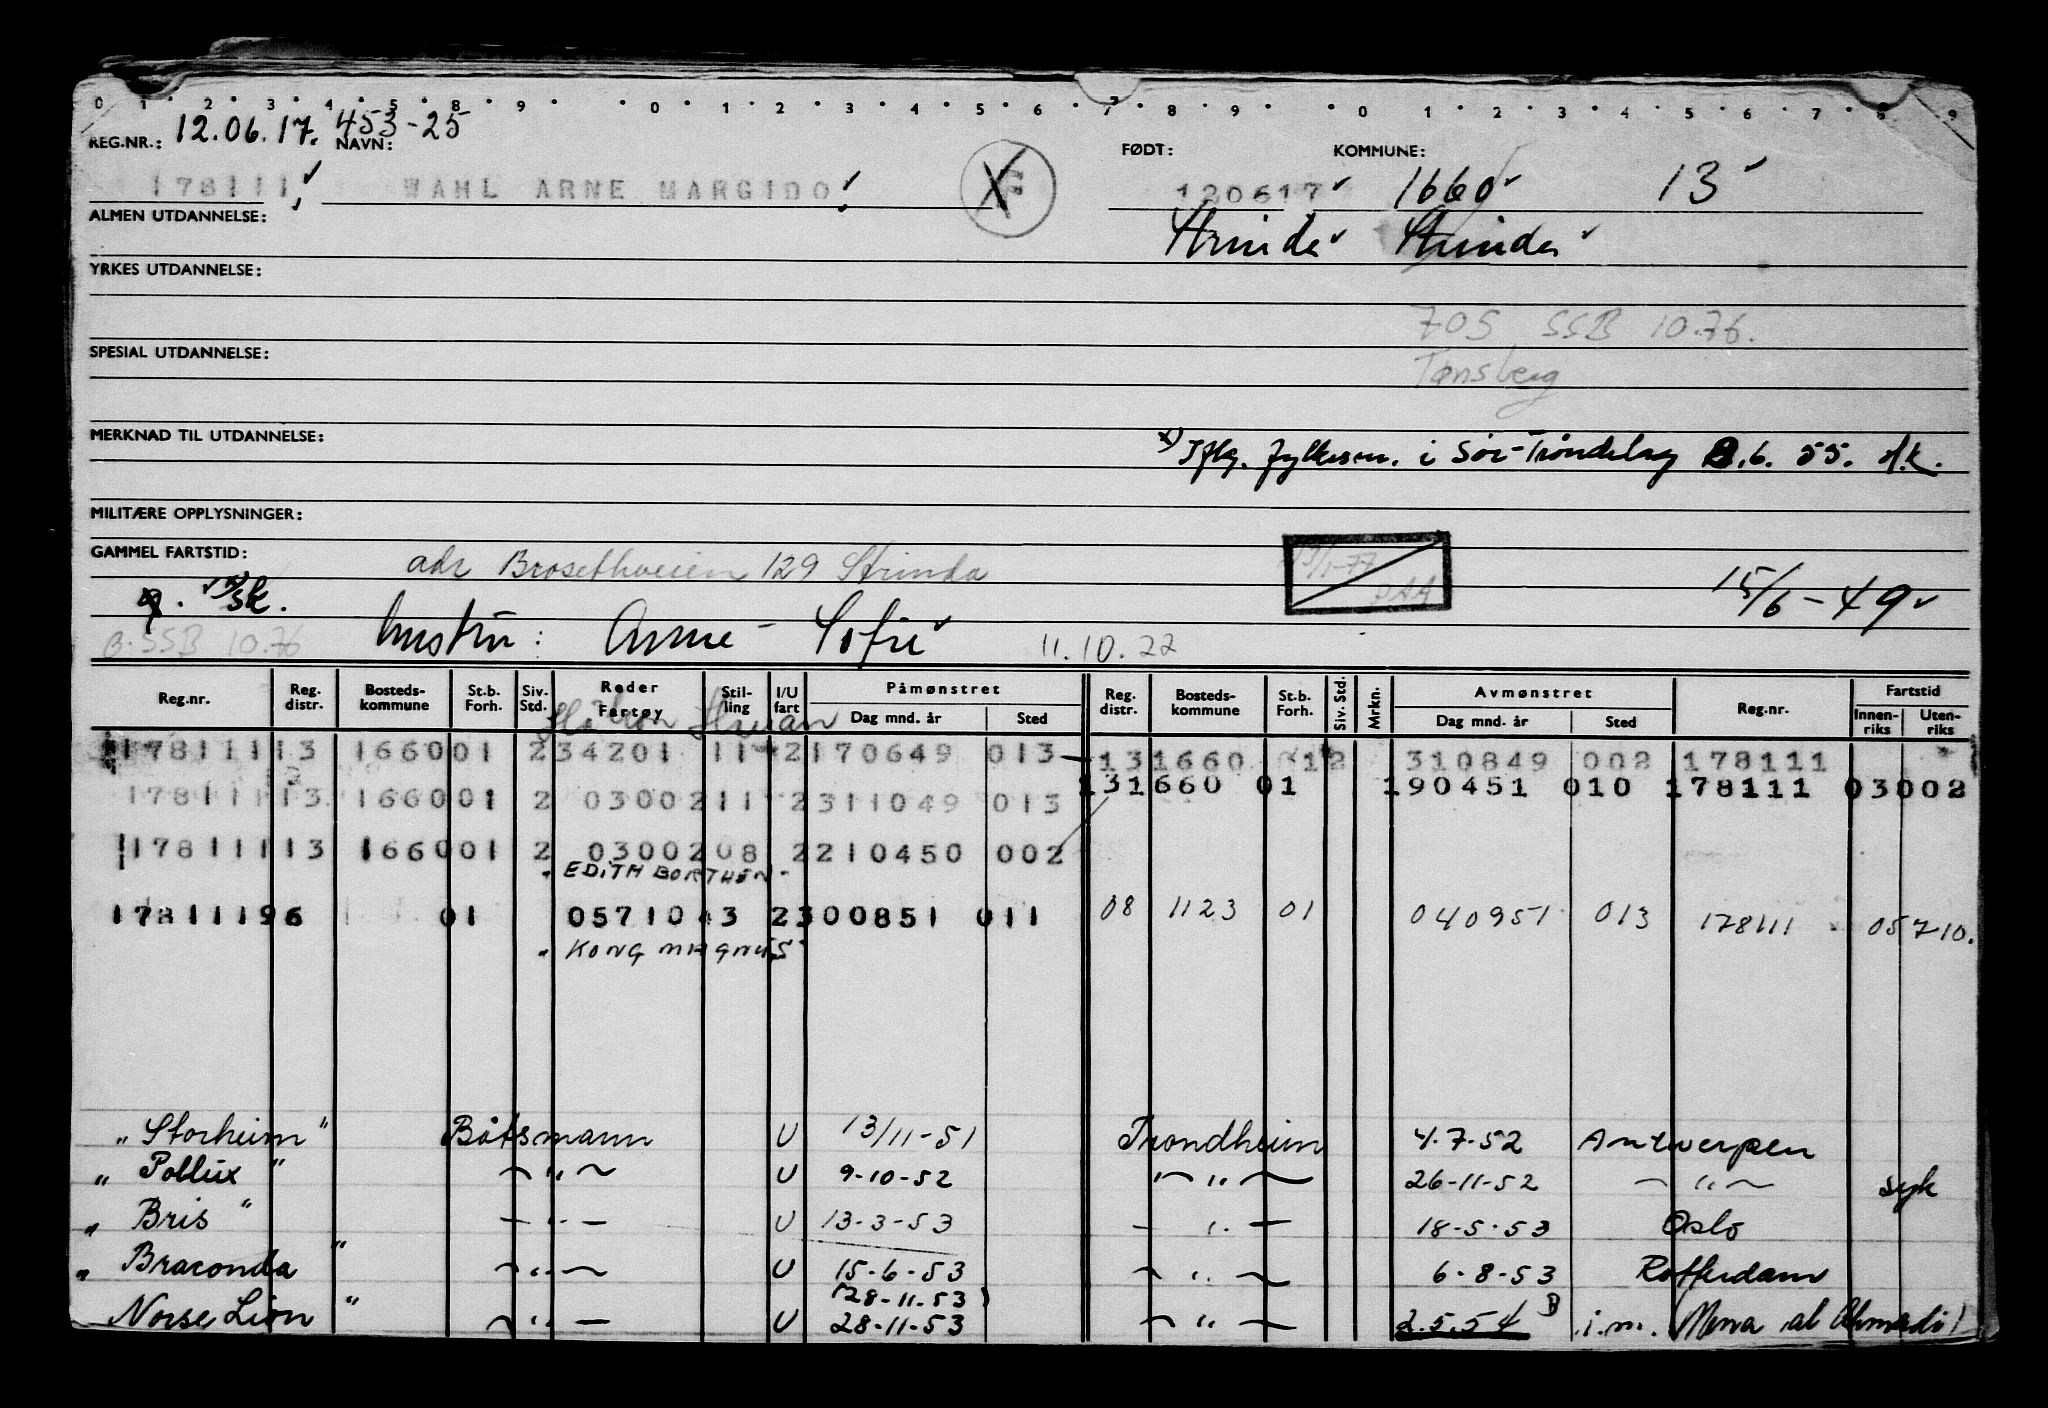 0 1 2 3 4 5 8 9 0 1 2 3 4 5 6 7 8 9 0 1 2 3 4 5 6 7 8 9
REG.NR.: 12.06.17. 453-25
NAVN: FØDT: KOMMUNE:
178111 WAHL ARNE MARGIDO 120617 1660 13
ALMEN UTDANNELSE: Strinda Strinda
YRKES UTDANNELSE:
705 SSB 10.76.
SPESIAL UTDANNELSE: Tønsberg
MERKNAD TIL UTDANNELSE: x) Iflg. fylkesm. i Sør-Trøndelag 8.6.55. d.k.
MILITÆRE OPPLYSNINGER:
GAMMEL FARTSTID: adr Brosethveien 129 Strinda 13/1-77
g. sk. 15/6-49
B. SSB 10.76 hustru: Anne-Sofie 11.10.22
Reg.nr. Reg. distr. Bosteds-kommune St.b. Forh. Siv. Std. Reder Fartøy Stil-ling I/U fart Påmønstret Dag mnd. år Sted Reg. distr. Bosteds-kommune St.b. Forh. Siv. Std. Mrkn. Avmønstret Dag mnd. år Sted Reg.nr. Fartstid Innen-riks Uten-riks
178111 13 1660 01 2 34201 11 2 170649 013 13 1660 01 2 310849 002 178111
13 1660 01 190451 010 178111 03002
178111 13 1660 01 2 03002 11 2 311049 013
178111 13 1660 01 2 03002 08 2 210450 002
" EDITH BORTHEN "
178111 96 01 05710 43 2 300851 011 08 1123 01 040951 013 178111 05710.
" KONG MAGNUS "
" Storheim " Båtsmann U 13/11-51 Trondheim 4.7.52 Antwerpen
" Pollux " - " - U 9-10-52 - " - 26-11-52 - " - syk
" Bris " - " - U 13-3-53 - " - 18-5-53 Oslo
" Braconda " - " - U 15-6-53 - " - 6-8-53 Rotterdam
(28-11-53)
Norse Lion " - " - U 28-11-53 - " - 2.5.54 i.m. (Mena al Ahmadi)